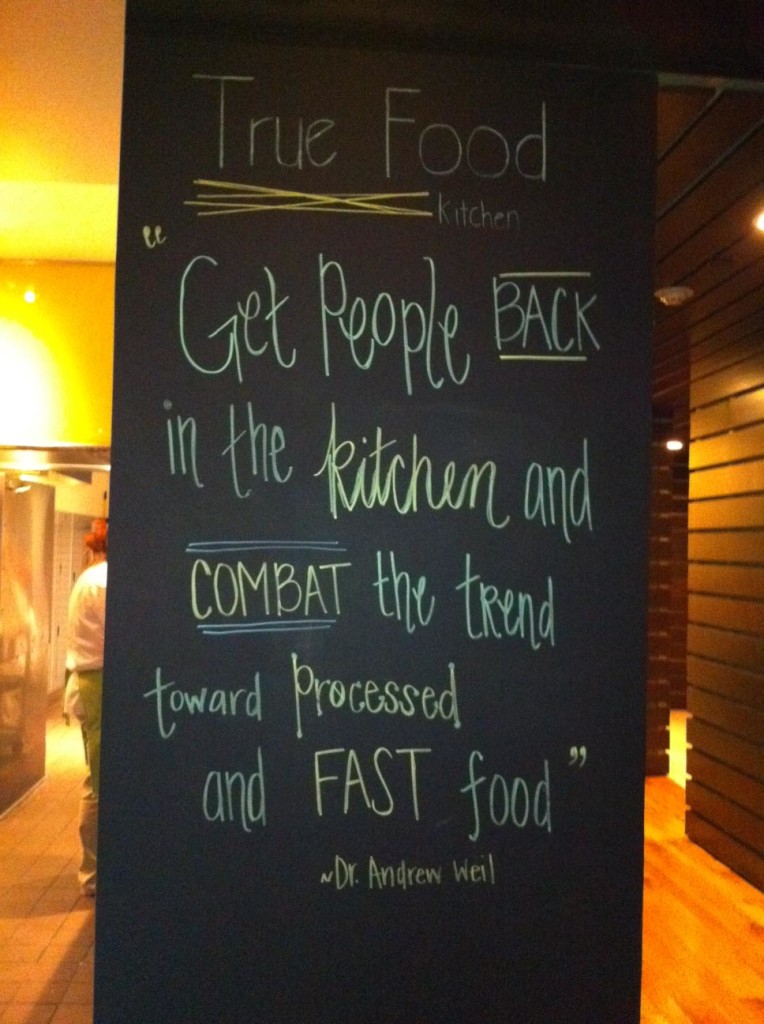 True Food
Kitchen
"Get People BACK
in the kitchen and
COMBAT the trend
toward processed
and FAST food"
~Dr. Andrew Weil